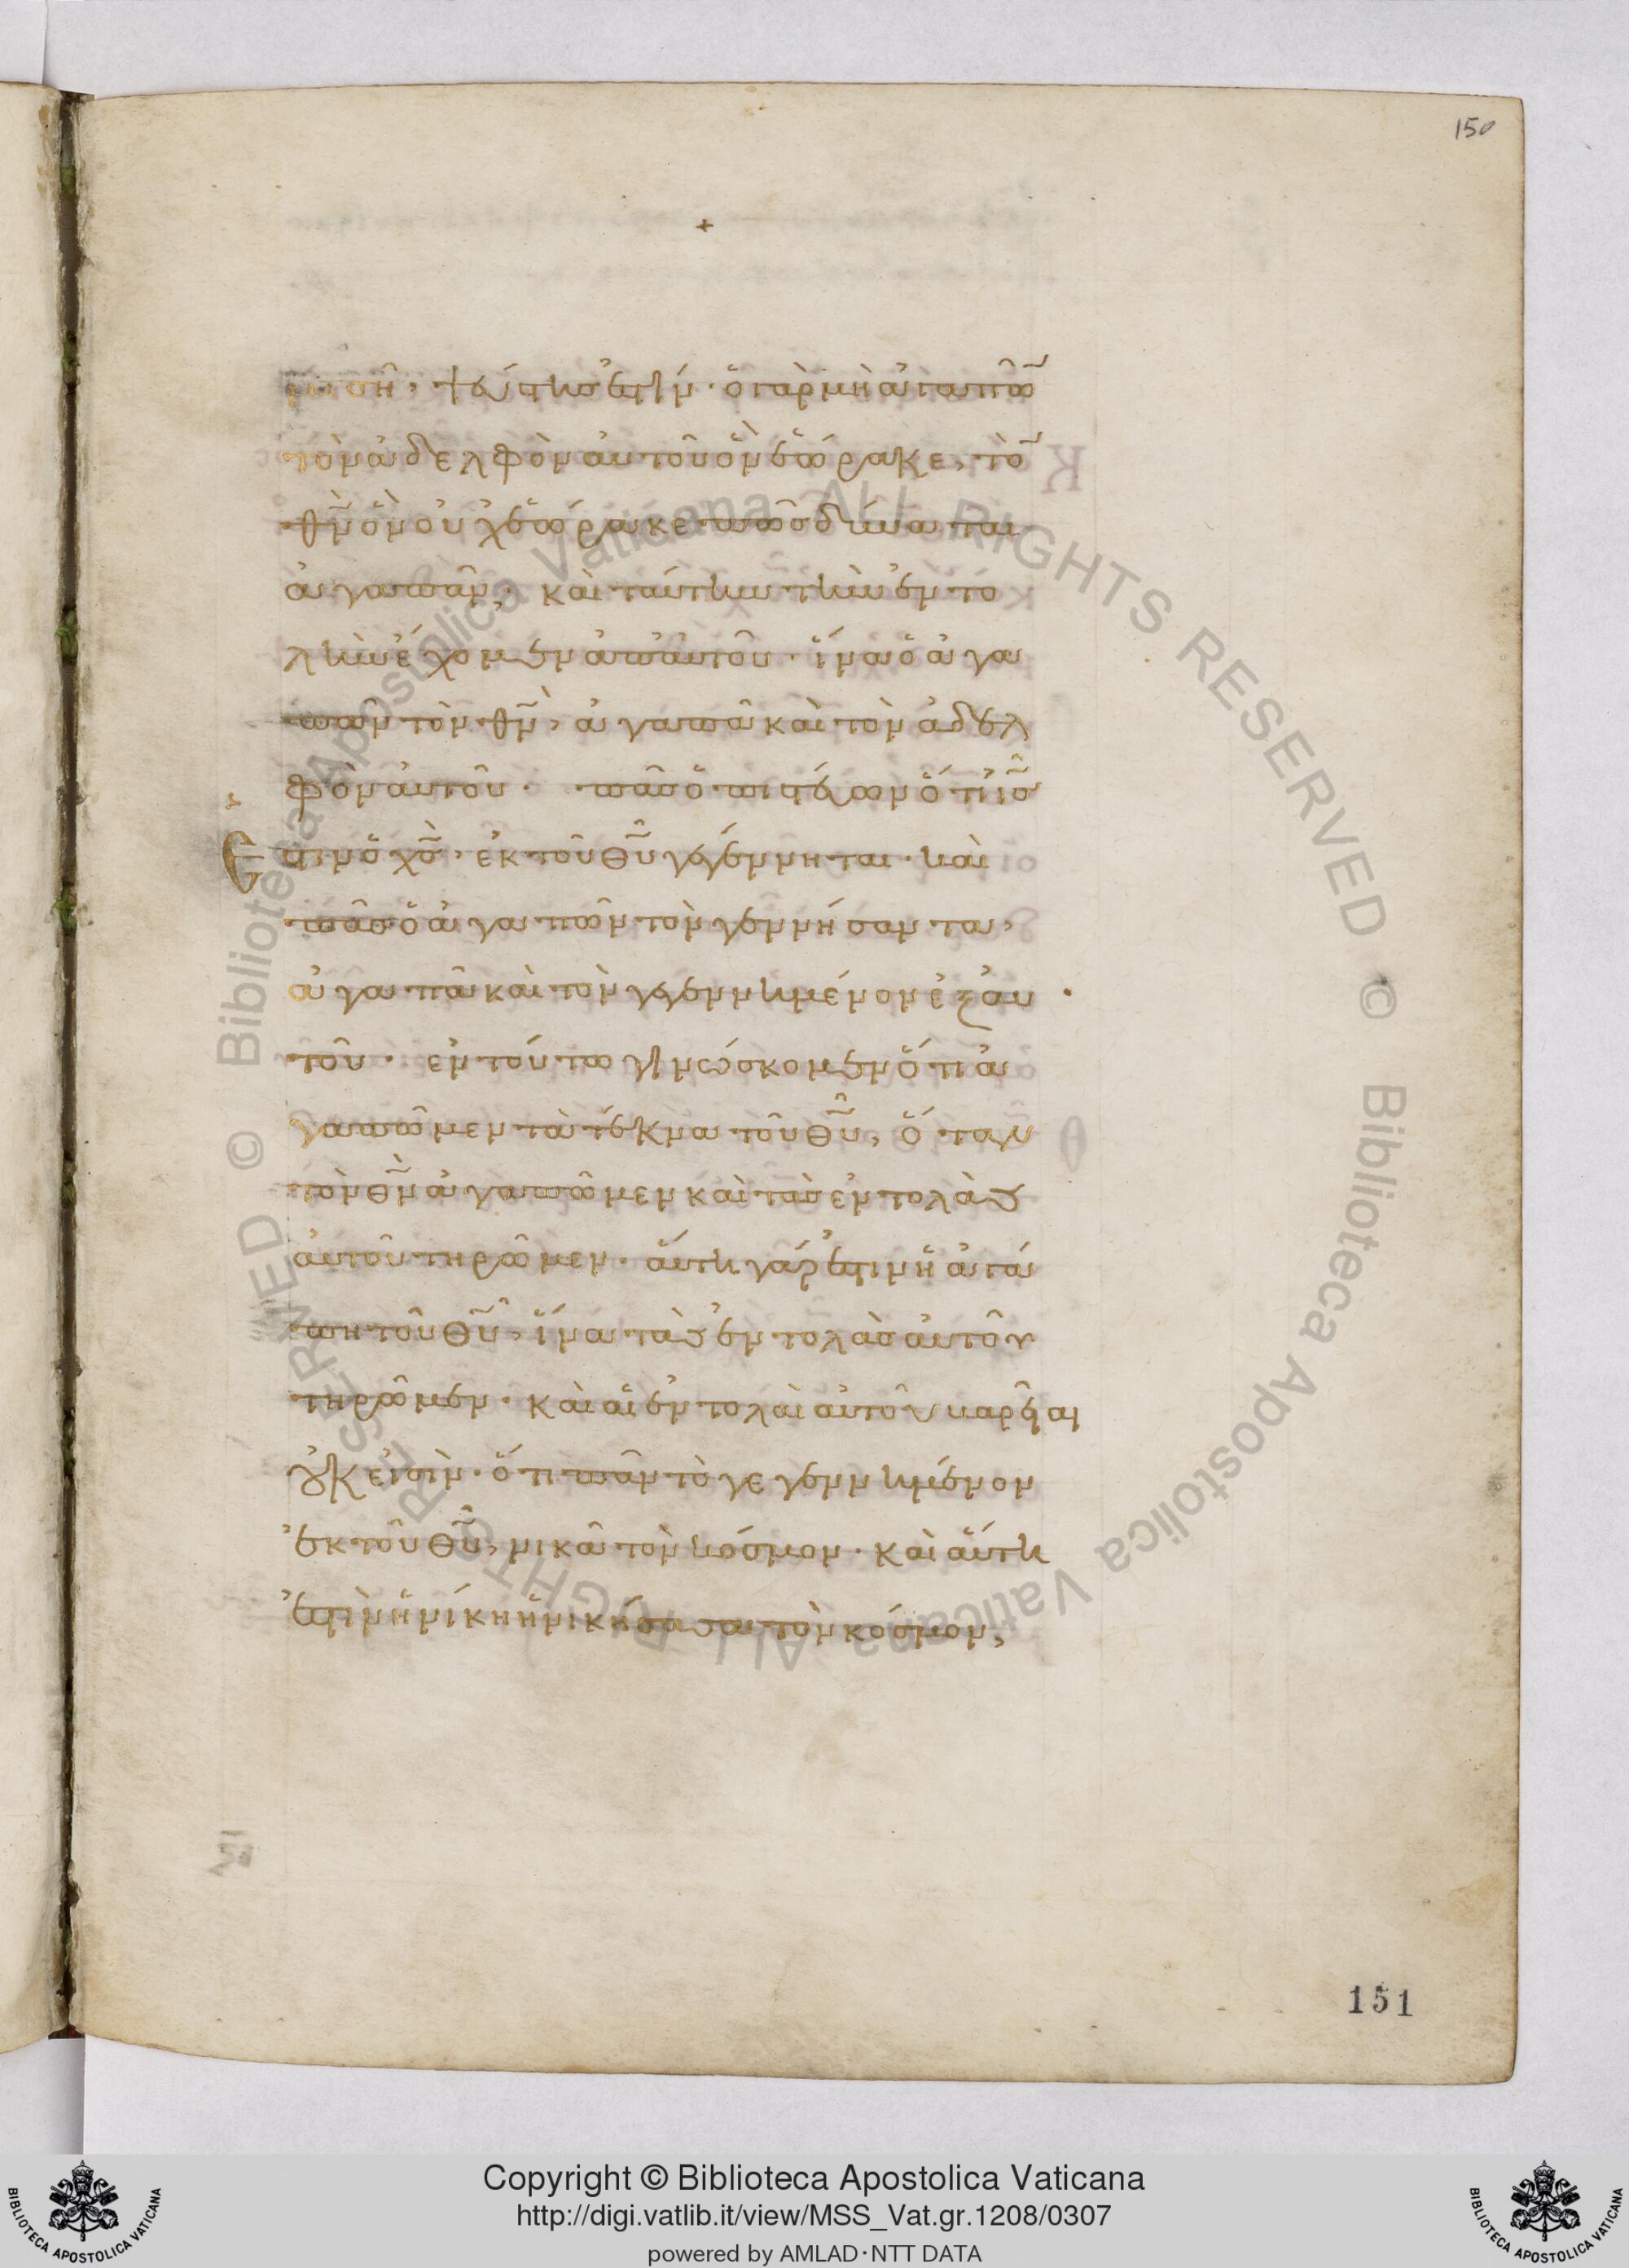 150
+
μισῆ, ψεύστης ἐστίν· ὁ γὰρ μὴ ἀγαπῶ̅
τὸν ἀδελφὸν αὐτοῦ ὃν ἑώρακε, τὸ̅
θ̅ν̅ ὃν οὐχ ἑώρακε πῶς δύναται
ἀγαπᾶν; καὶ ταύτην τὴν ἐντο
λὴν ἔχομεν ἀπ' αὐτοῦ· ἵνα ὁ ἀγα
πῶν τὸν θ̅ν̅, ἀγαπᾶ καὶ τὸν ἀδελ
φὸν αὐτοῦ· πᾶς ὁ πιστεύων ὅτι ι̅ς̅
Ἐστιν ὁ χ̅ς̅, ἐκ τοῦ θ̅υ̅ γεγέννηται· καὶ
πᾶς ὁ ἀγαπῶν τὸν γεννήσαντα,
ἀγαπᾶ καὶ τὸν γεγεννημένον ἐξ αὐ
τοῦ· ἐν τούτω γινώσκομεν ὅτι ἀ
γαπῶμεν τὰ τέκνα τοῦ θ̅υ̅, ὅταν
τὸν θ̅ν̅ ἀγαπῶμεν καὶ τὰς ἐντολὰς
αὐτοῦ τηρῶμεν· αὕτη γάρ ἐστιν ἡ ἀγά
πη τοῦ θ̅υ̅, ἵνα τὰς ἐντολὰς αὐτοῦ
τηρῶμεν· καὶ αἱ ἐντολαὶ αὐτοῦ βαρεῖαι
οὐκ εἰσὶν· ὅτι πᾶν τὸ γεγεννημένον
ἐκ τοῦ θ̅υ̅, νικᾶ τὸν κόσμον· καὶ αὕτη
ἐστὶν ἡ νίκη ἡ νικήσασα τὸν κόσμον,
151
© Biblioteca Apostolica Vaticana ALL RIGHTS RESERVED © Biblioteca Apostolica Vaticana ALL RIGHTS RESERVED
Copyright © Biblioteca Apostolica Vaticana
http://digi.vatlib.it/view/MSS_Vat.gr.1208/0307
powered by AMLAD·NTT DATA
BIBLIOTECA APOSTOLICA VATICANA
BIBLIOTECA APOSTOLICA VATICANA